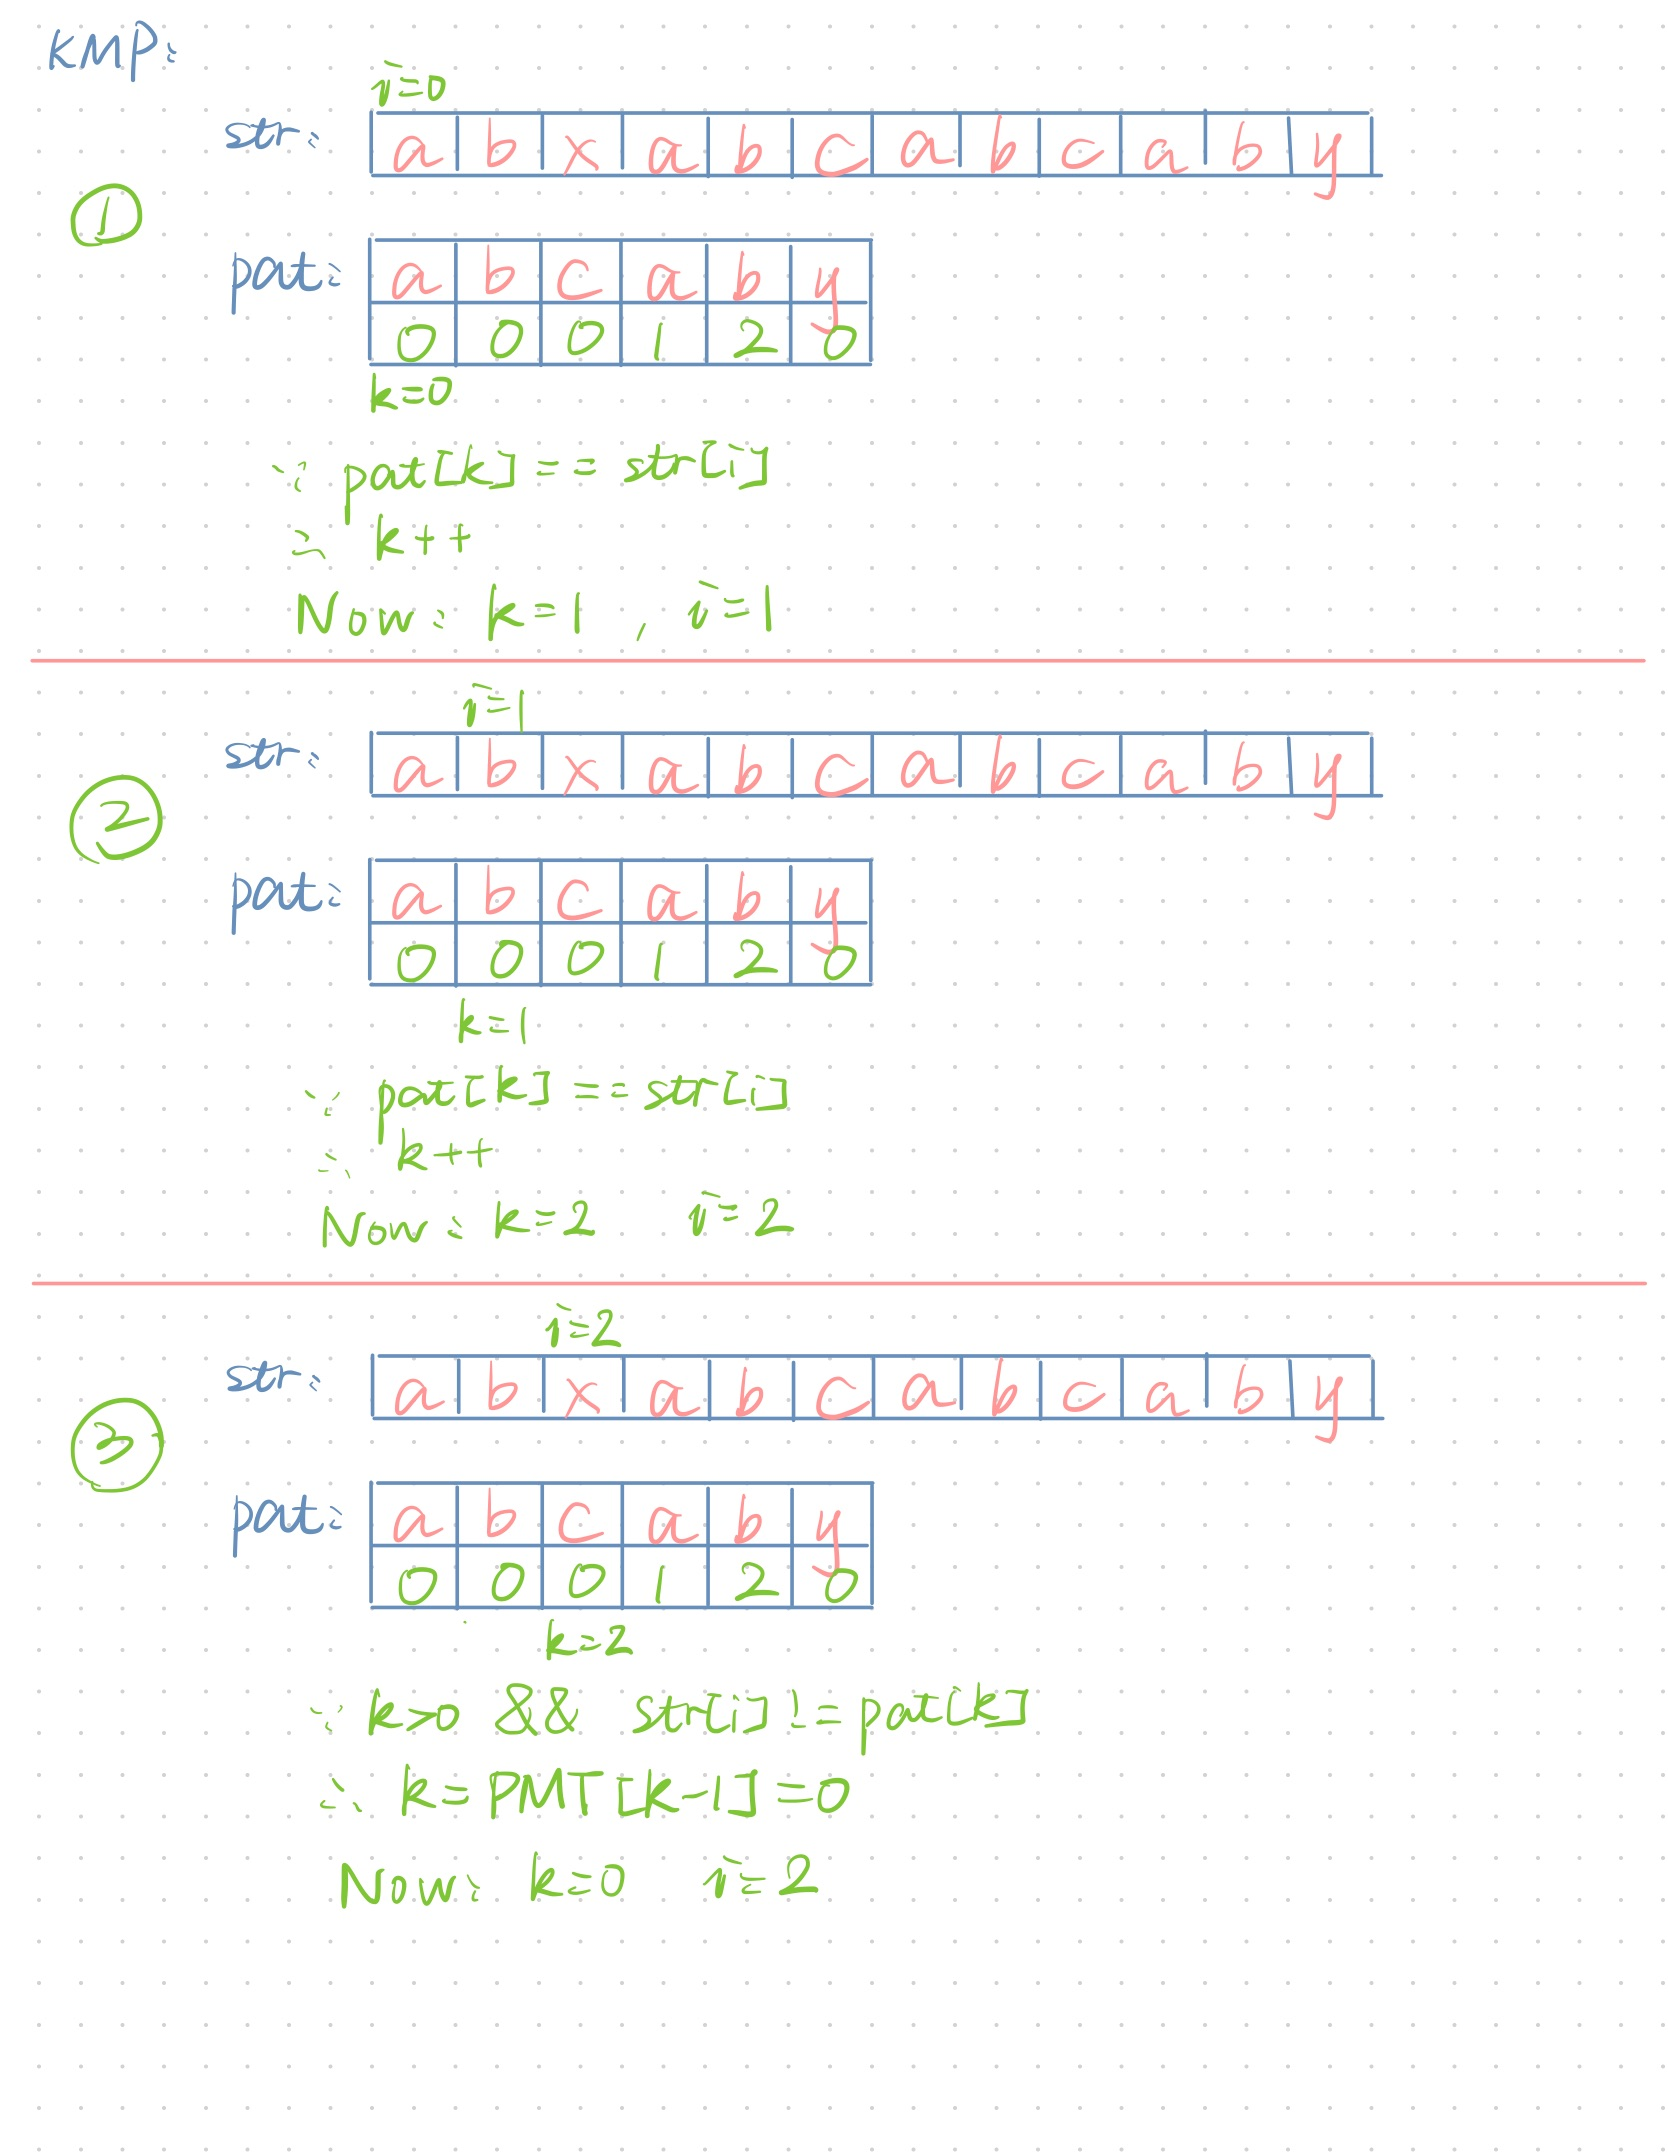 KMP:
i=0
str: a b x a b c a b c a b y
①
pat: a b c a b y
0 0 0 1 2 0
k=0
∵ pat[k] == str[i]
∴ k++
Now: k=1 , i=1
i=1
str: a b x a b c a b c a b y
②
pat: a b c a b y
0 0 0 1 2 0
k=1
∵ pat[k] == str[i]
∴ k++
Now: k=2 i=2
i=2
str: a b x a b c a b c a b y
③
pat: a b c a b y
0 0 0 1 2 0
k=2
∵ k>0 && str[i] != pat[k]
∴ k=PMT[k-1]=0
Now: k=0 i=2